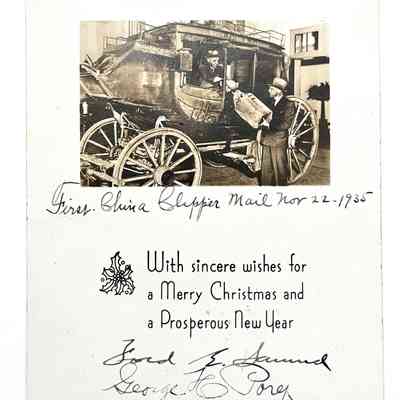 First China Clipper Mail Nov 22-1935
With sincere wishes for
a Merry Christmas and
a Prosperous New Year
Ford E. Samuel
George E